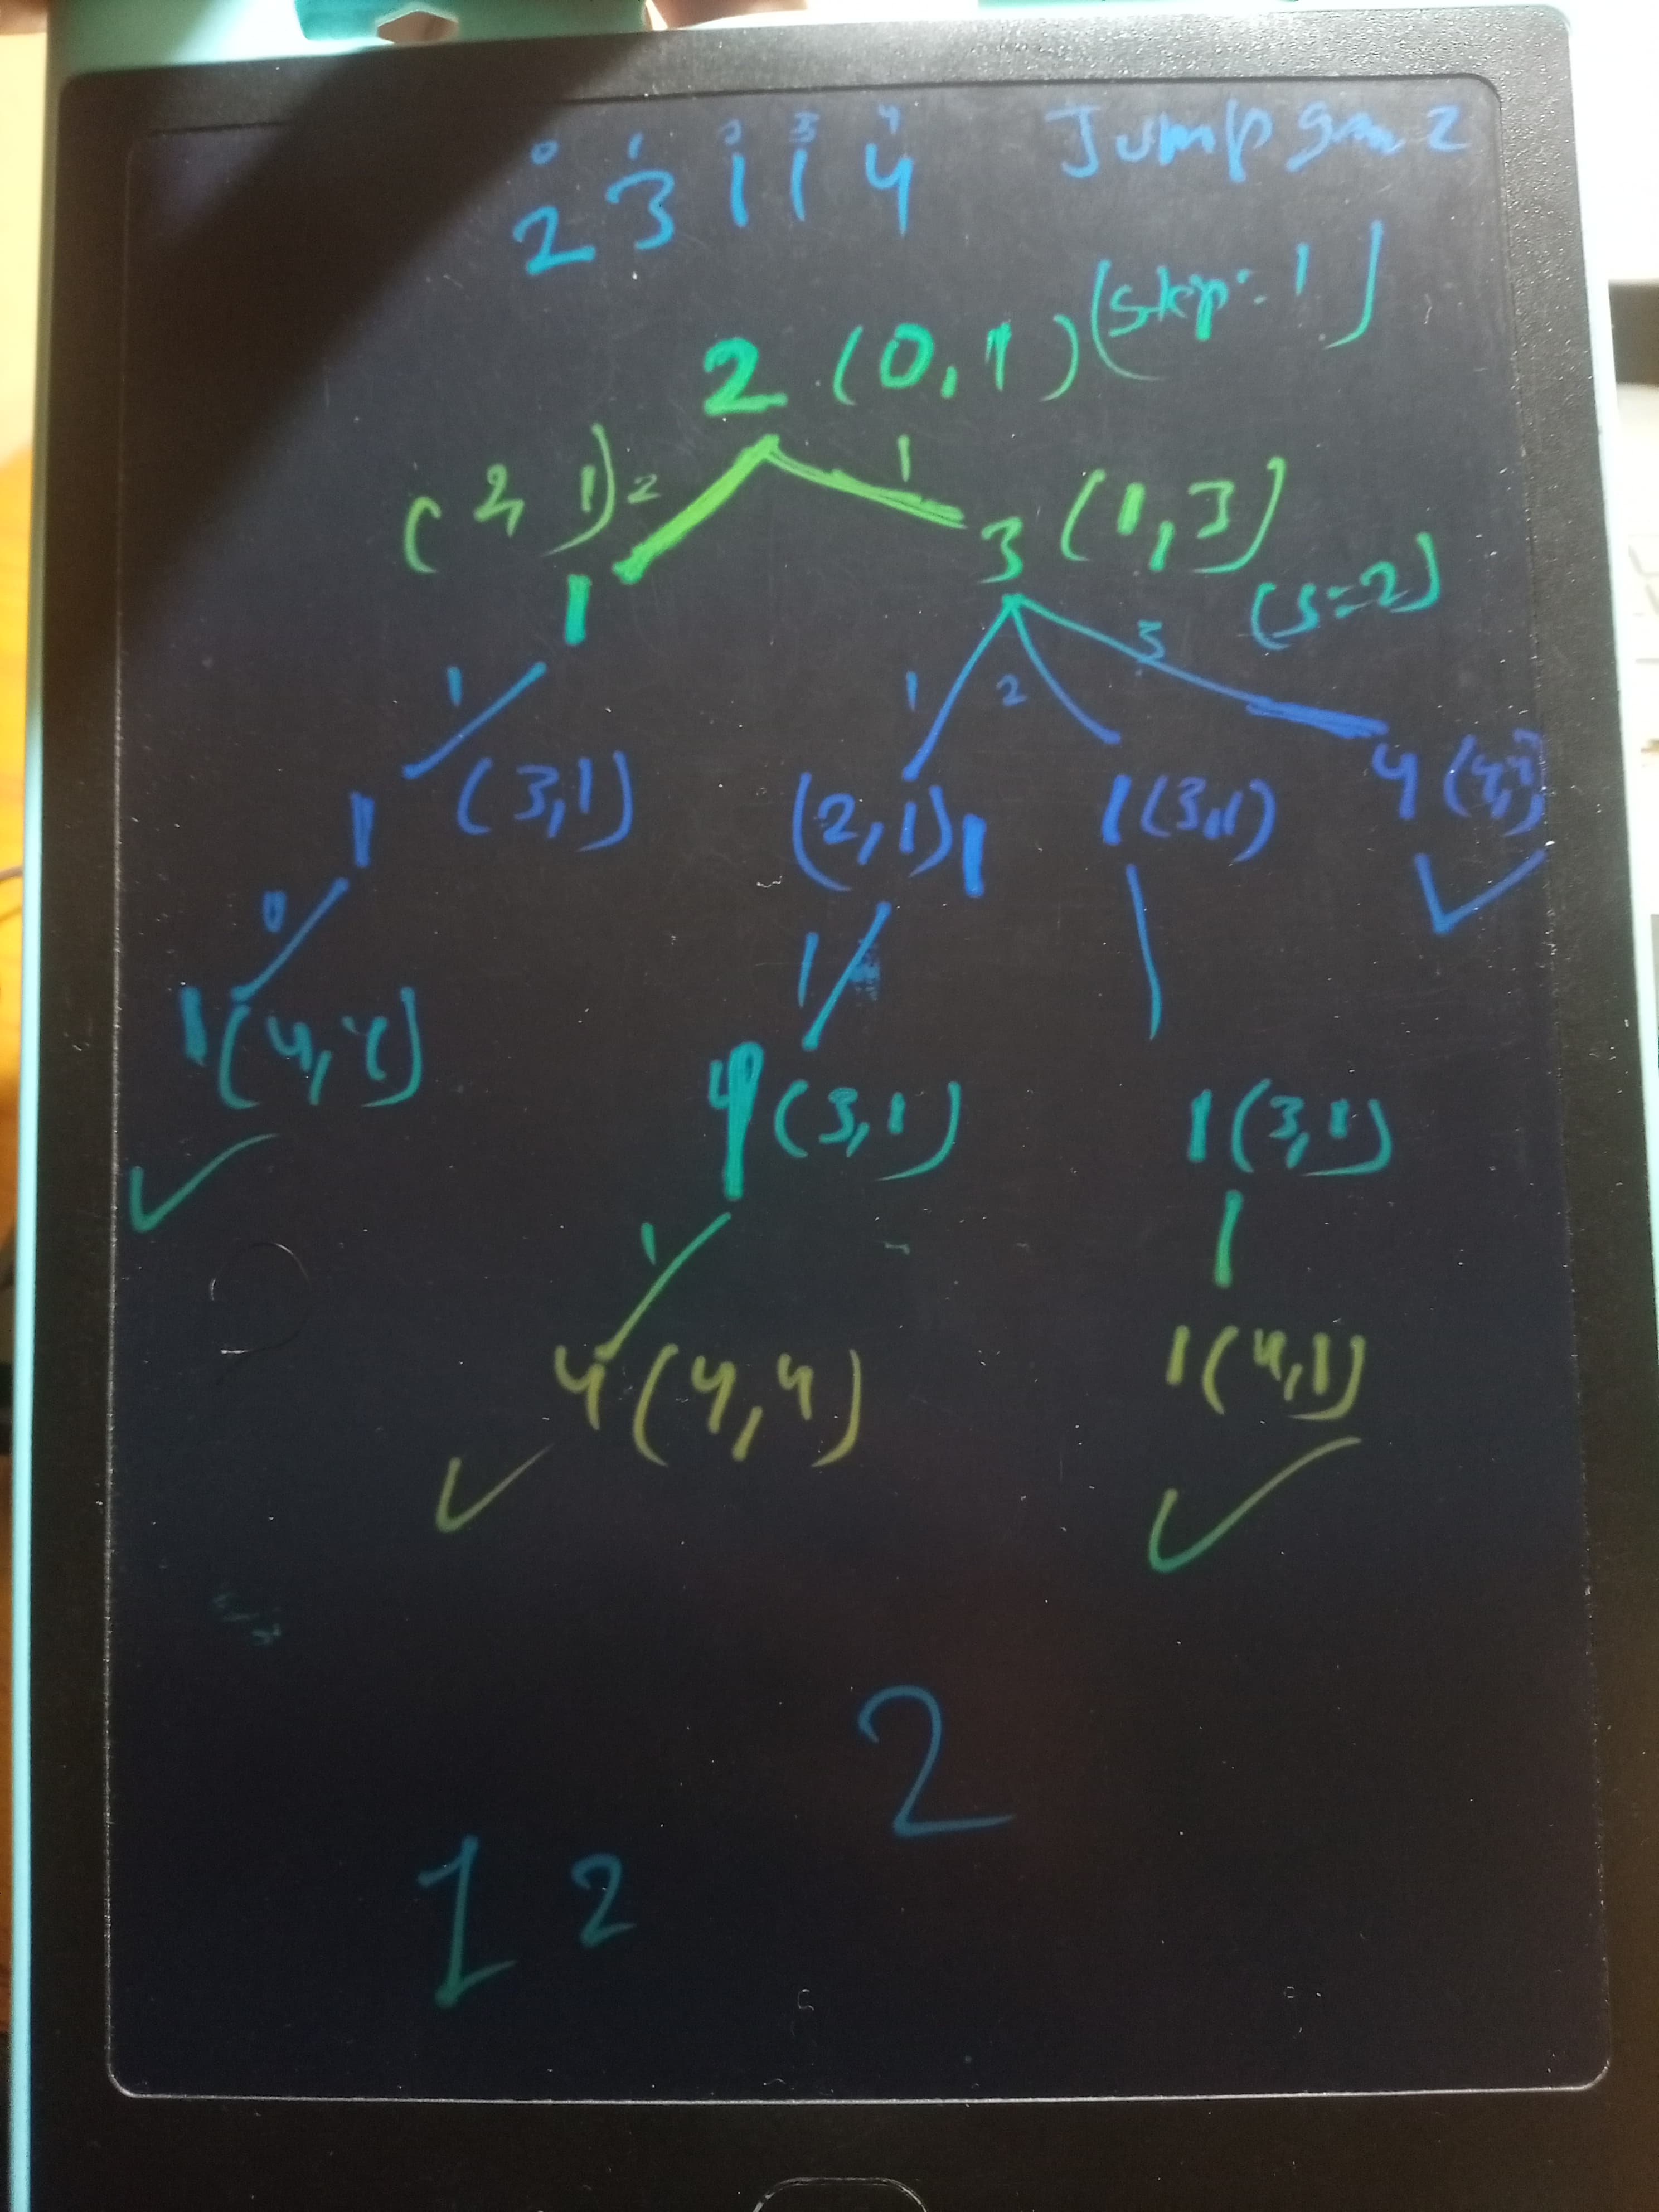 0 1 2 3 4
2 3 1 1 4 Jump gam 2
2 (0,1) (skip:1)
(2,1) 2 1
1 3 (1,3)
(s=2)
1 1 2 3
1 (3,1) (2,1) 1 1 (3,1) 4 (4,4)
0 1
1 (4,4) (3,1) 1 (3,1)
1
4 (4,4) 1 (4,1)
2
1 2